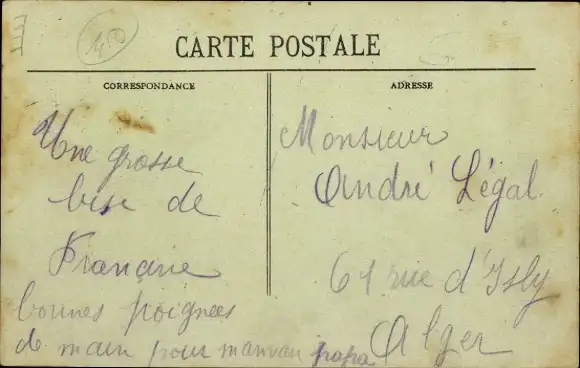 40
CARTE POSTALE
CORRESPONDANCE
Une grosse
bise de
Francine
bonnes poignees
de main pour maman papa
ADRESSE
Monsieur
André Légal
61 rue d'Isly
Alger